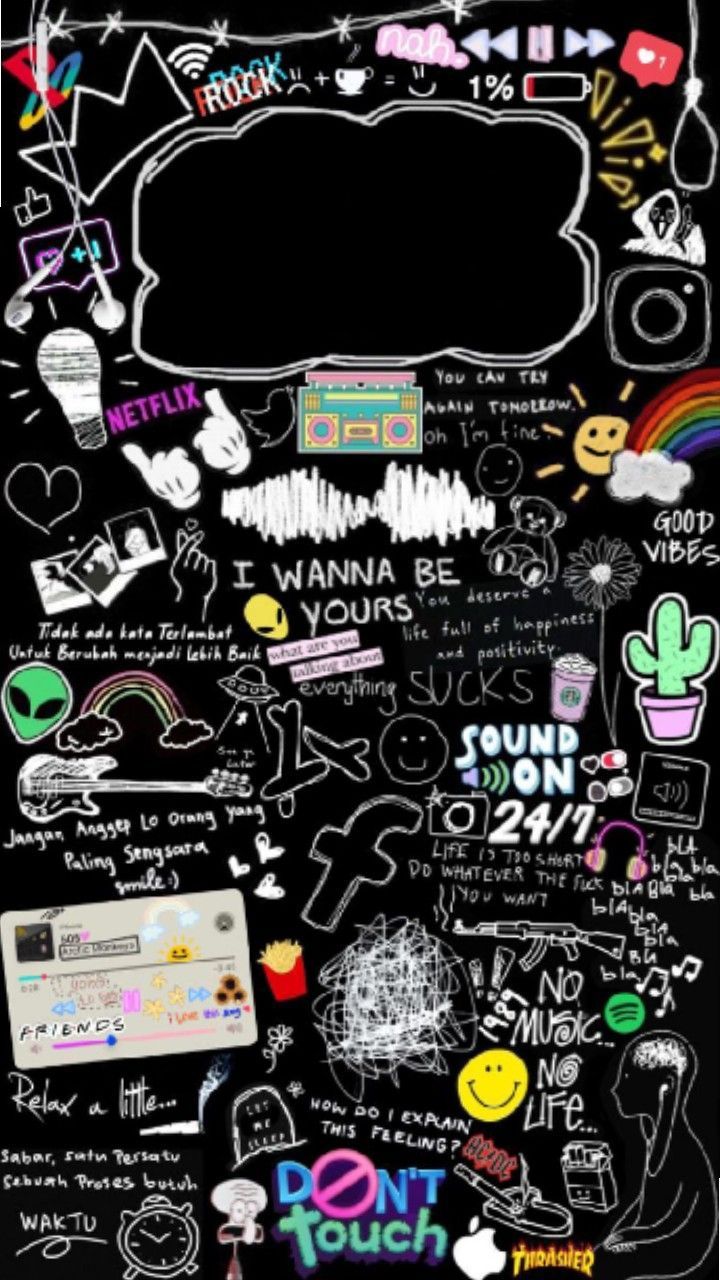 nah.
ROCK
+
=
1%
1
+1
NETFLIX
YOU CAN TRY
AGAIN TOMORROW.
oh I'm fine.
GOOD
VIBES
I WANNA BE
YOURS
You deserve a
life full of happiness
and positivity.
Tidak ada kata Terlambat
Untuk Berubah menjadi Lebih Baik
what are you
talking about
everything SUCKS
See ya
Later
SOUND
ON
24/7
Jangan Anggep Lo Orang yang
Paling Sengsara
smile :)
LIFE IS TOO SHORT
DO WHATEVER THE FUCK
YOU WANT
bLA
bla bla
bla
bLA BLA bla
bLA bla
bLA
bla
BLA
bla
505
Arctic Monkeys
i Love this song
FRIENDS
1989
NO
MUSIC...
NO
LIFE...
Relax a little...
LET
ME
SLEEP
HOW DO I EXPLAIN
THIS FEELING?
AC/DC
Sabar, satu Persatu
Sebuah Proses butuh
WAKTU
DON'T
touch
THRASHER